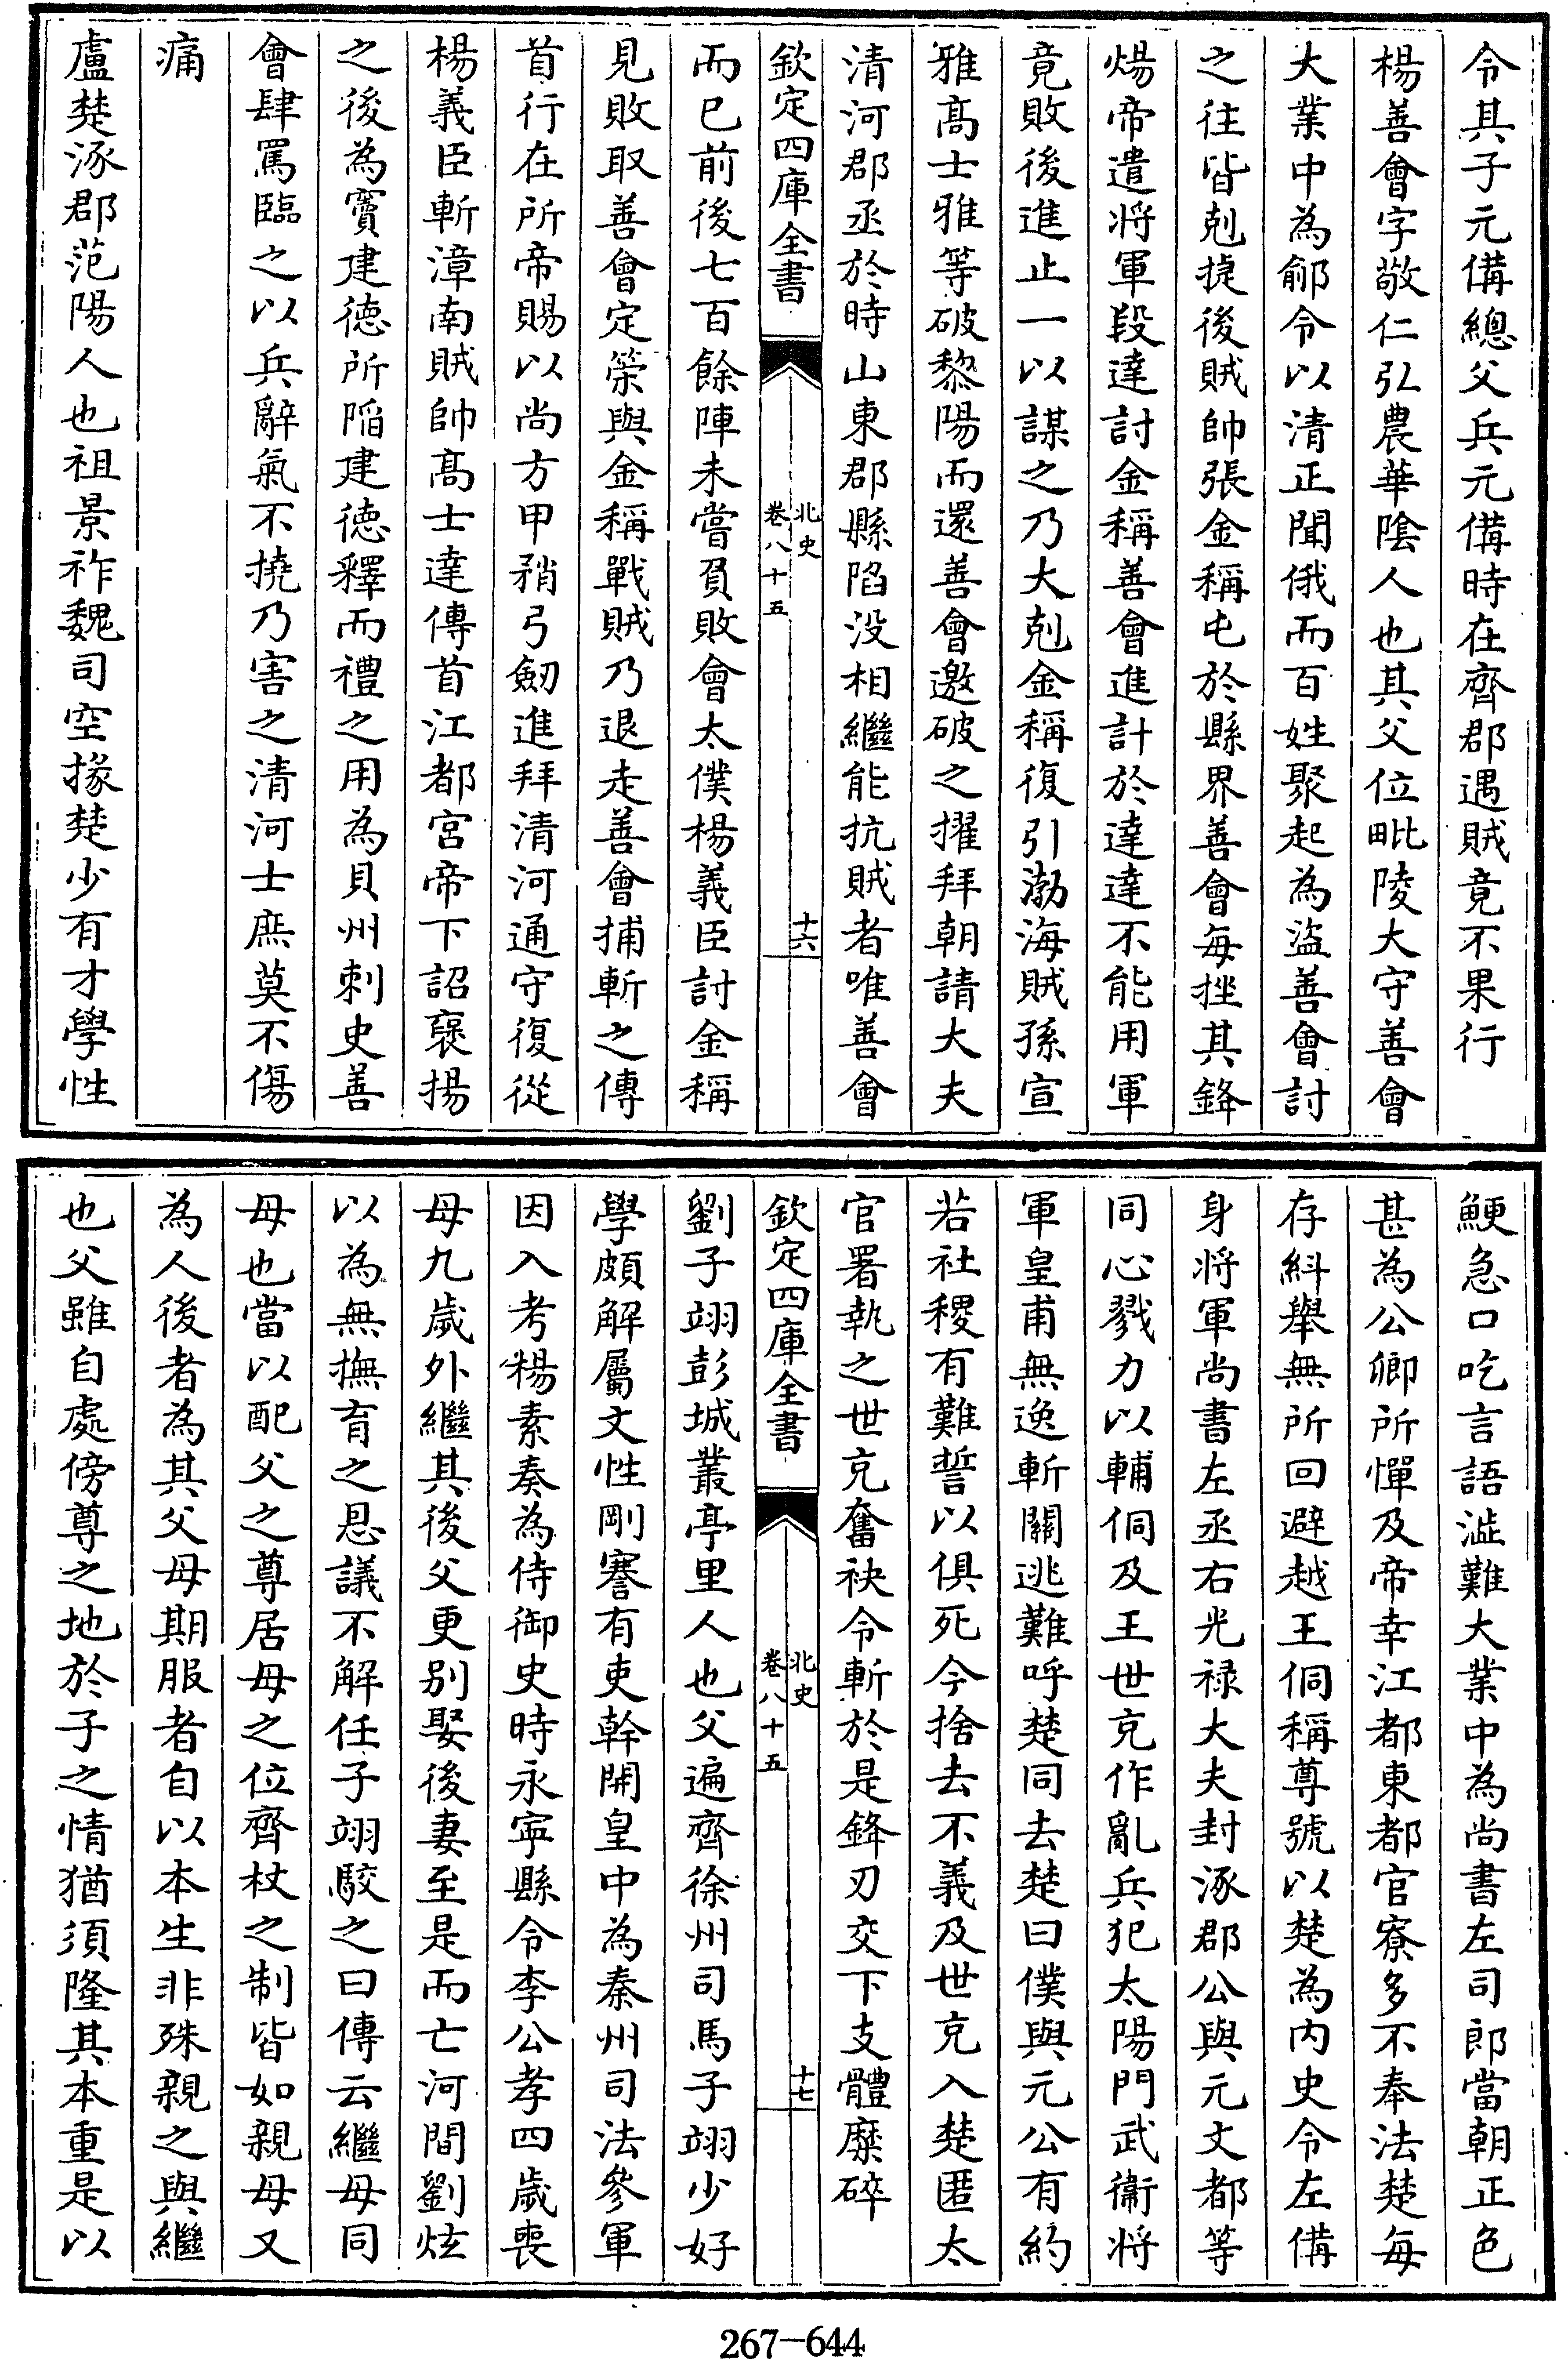 令其子元備總父兵元備時在齊郡遇賊竟不果行
楊善會字敬仁弘農華陰人也其父位毗陵大守善會
大業中為鄃令以清正聞俄而百姓聚起為盜善會討
之往皆剋捷後賊帥張金稱屯於縣界善會每挫其鋒
煬帝遣將軍段達討金稱善會進計於達達不能用軍
竟敗後進止一以謀之乃大剋金稱復引渤海賊孫宣
雅髙士雅等破黎陽而還善會邀破之擢拜朝請大夫
清河郡丞於時山東郡縣陷没相繼能抗賊者唯善會
欽定四庫全書
北史
卷八十五
十六
而已前後七百餘陣未嘗負敗會太僕楊義臣討金稱
見敗取善會定策與金稱戰賊乃退走善會捕斬之傳
首行在所帝賜以尚方甲矟弓劒進拜清河通守復從
楊義臣斬漳南賊帥髙士達傳首江都宮帝下詔襃揚
之後為竇建德所陷建德釋而禮之用為貝州刺史善
會肆罵臨之以兵辭氣不撓乃害之清河士庶莫不傷
痛
盧楚涿郡范陽人也祖景祚魏司空掾楚少有才學性
鯁急口吃言語澁難大業中為尚書左司郎當朝正色
甚為公卿所憚及帝幸江都東都官寮多不奉法楚每
存糾舉無所回避越王侗稱尊號以楚為内史令左備
身將軍尚書左丞右光祿大夫封涿郡公與元文都等
同心戮力以輔侗及王世充作亂兵犯太陽門武衞將
軍皇甫無逸斬關逃難呼楚同去楚曰僕與元公有約
若社稷有難誓以俱死今捨去不義及世充入楚匿太
官署執之世充奮袂令斬於是鋒刃交下支體糜碎
欽定四庫全書
北史
卷八十五
十七
劉子翊彭城叢亭里人也父遍齊徐州司馬子翊少好
學頗解屬文性剛謇有吏幹開皇中為秦州司法參軍
因入考楊素奏為侍御史時永寜縣令李公孝四歲喪
母九歲外繼其後父更别娶後妻至是而亡河間劉炫
以為無撫育之恩議不解任子翊駁之曰傳云繼母同
母也當以配父之尊居母之位齊杖之制皆如親母又
為人後者為其父母期服者自以本生非殊親之與繼
也父雖自處傍尊之地於子之情猶須隆其本重是以
267-644